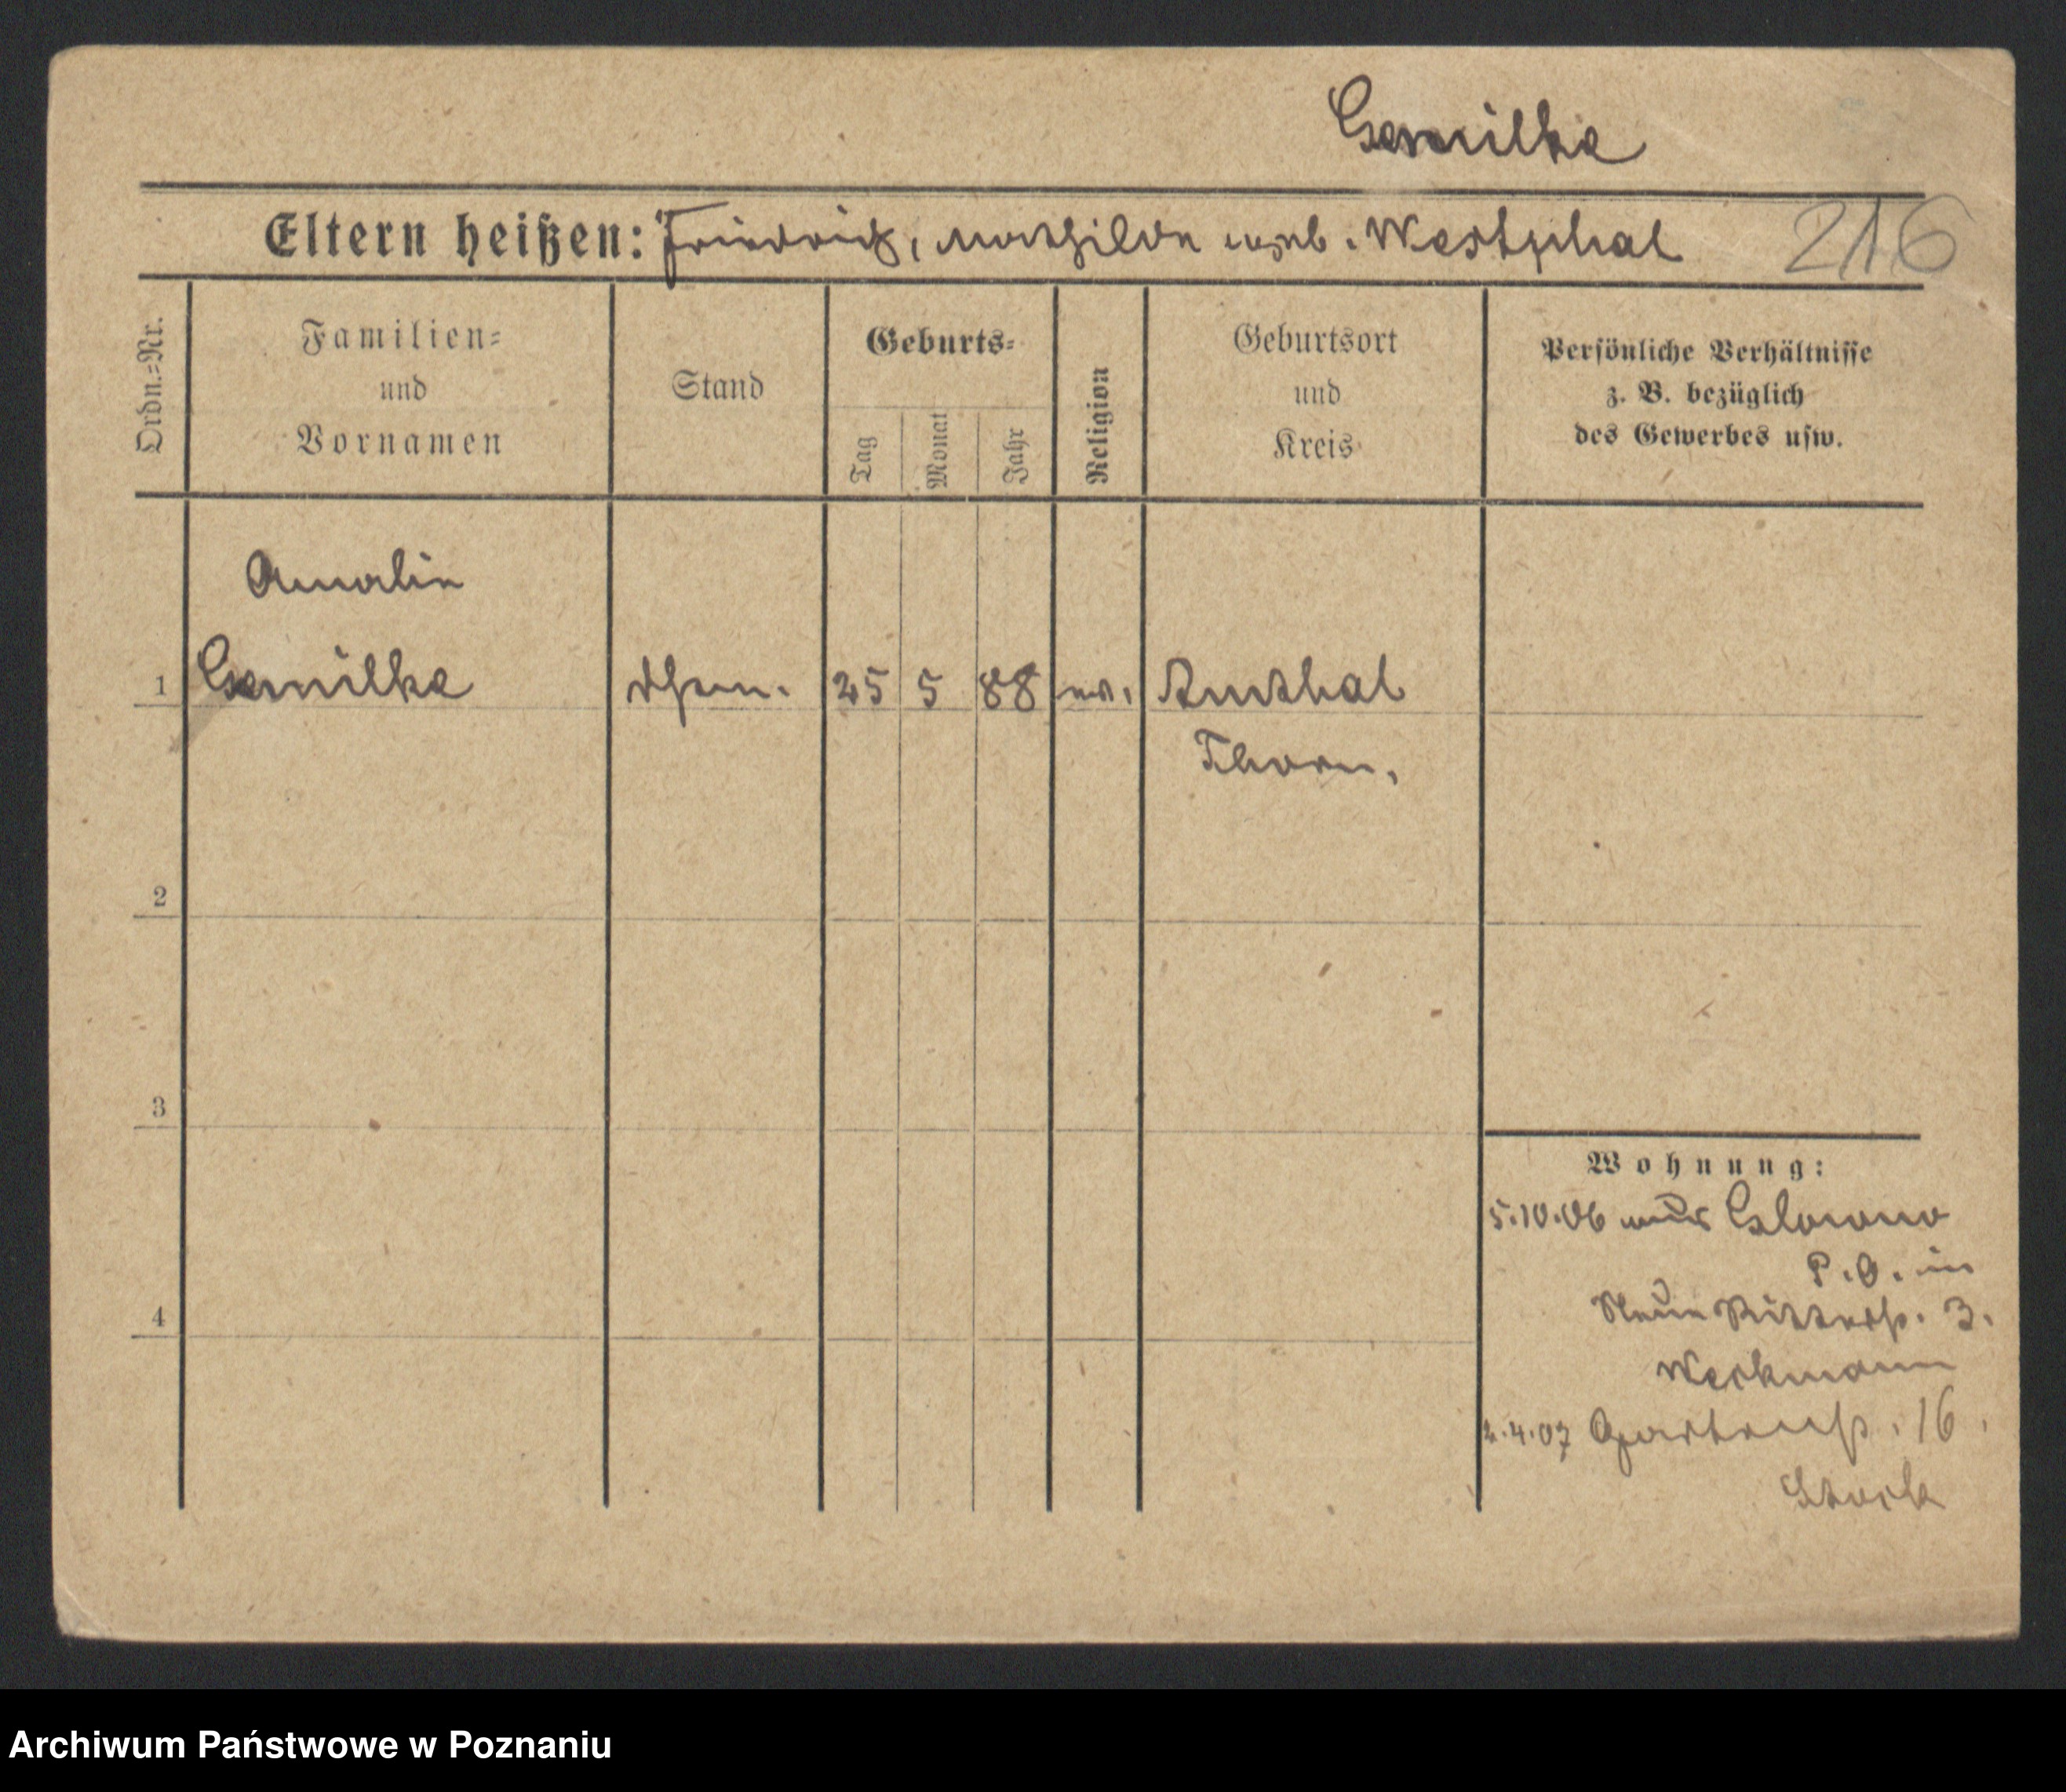 Gemilke
Eltern heißen: Friedrich, Mathilde geb. Westphal 216
Ordn.-Nr.
Familien-
und
Vornamen
Stand
Geburts-
Tag
Monat
Jahr
Religion
Geburtsort
und
Kreis
Persönliche Verhältnisse
z. B. bezüglich
des Gewerbes usw.
Amalie
1 Gemilke 25 5 88 ev. Amthal
Thorn.
2
3
4
Wohnung:
5.10.06 aus Glowno
P. O. in
Neue Ritterstr. 3.
Weckmann
2.4.07 Gartenstr. 16.
Stock
Archiwum Państwowe w Poznaniu